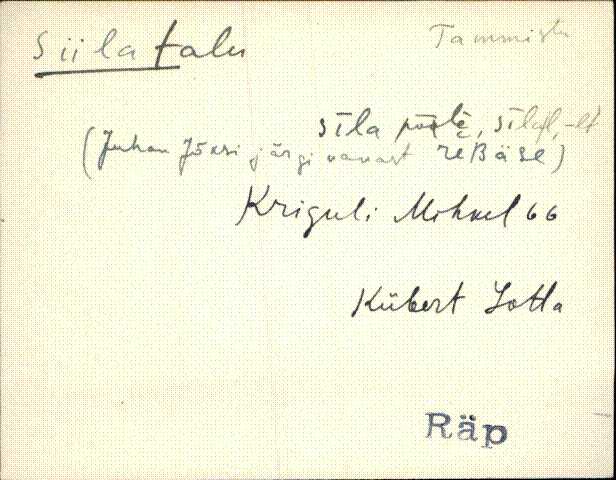 Siila talu
Tammistu
sīla pɷ̄lɛ̀, sīlal, -lt
(Juhan Jõksi järgi vanast reBäse)
Kriguli Mihkel 66
Kübert Lotta
Räp